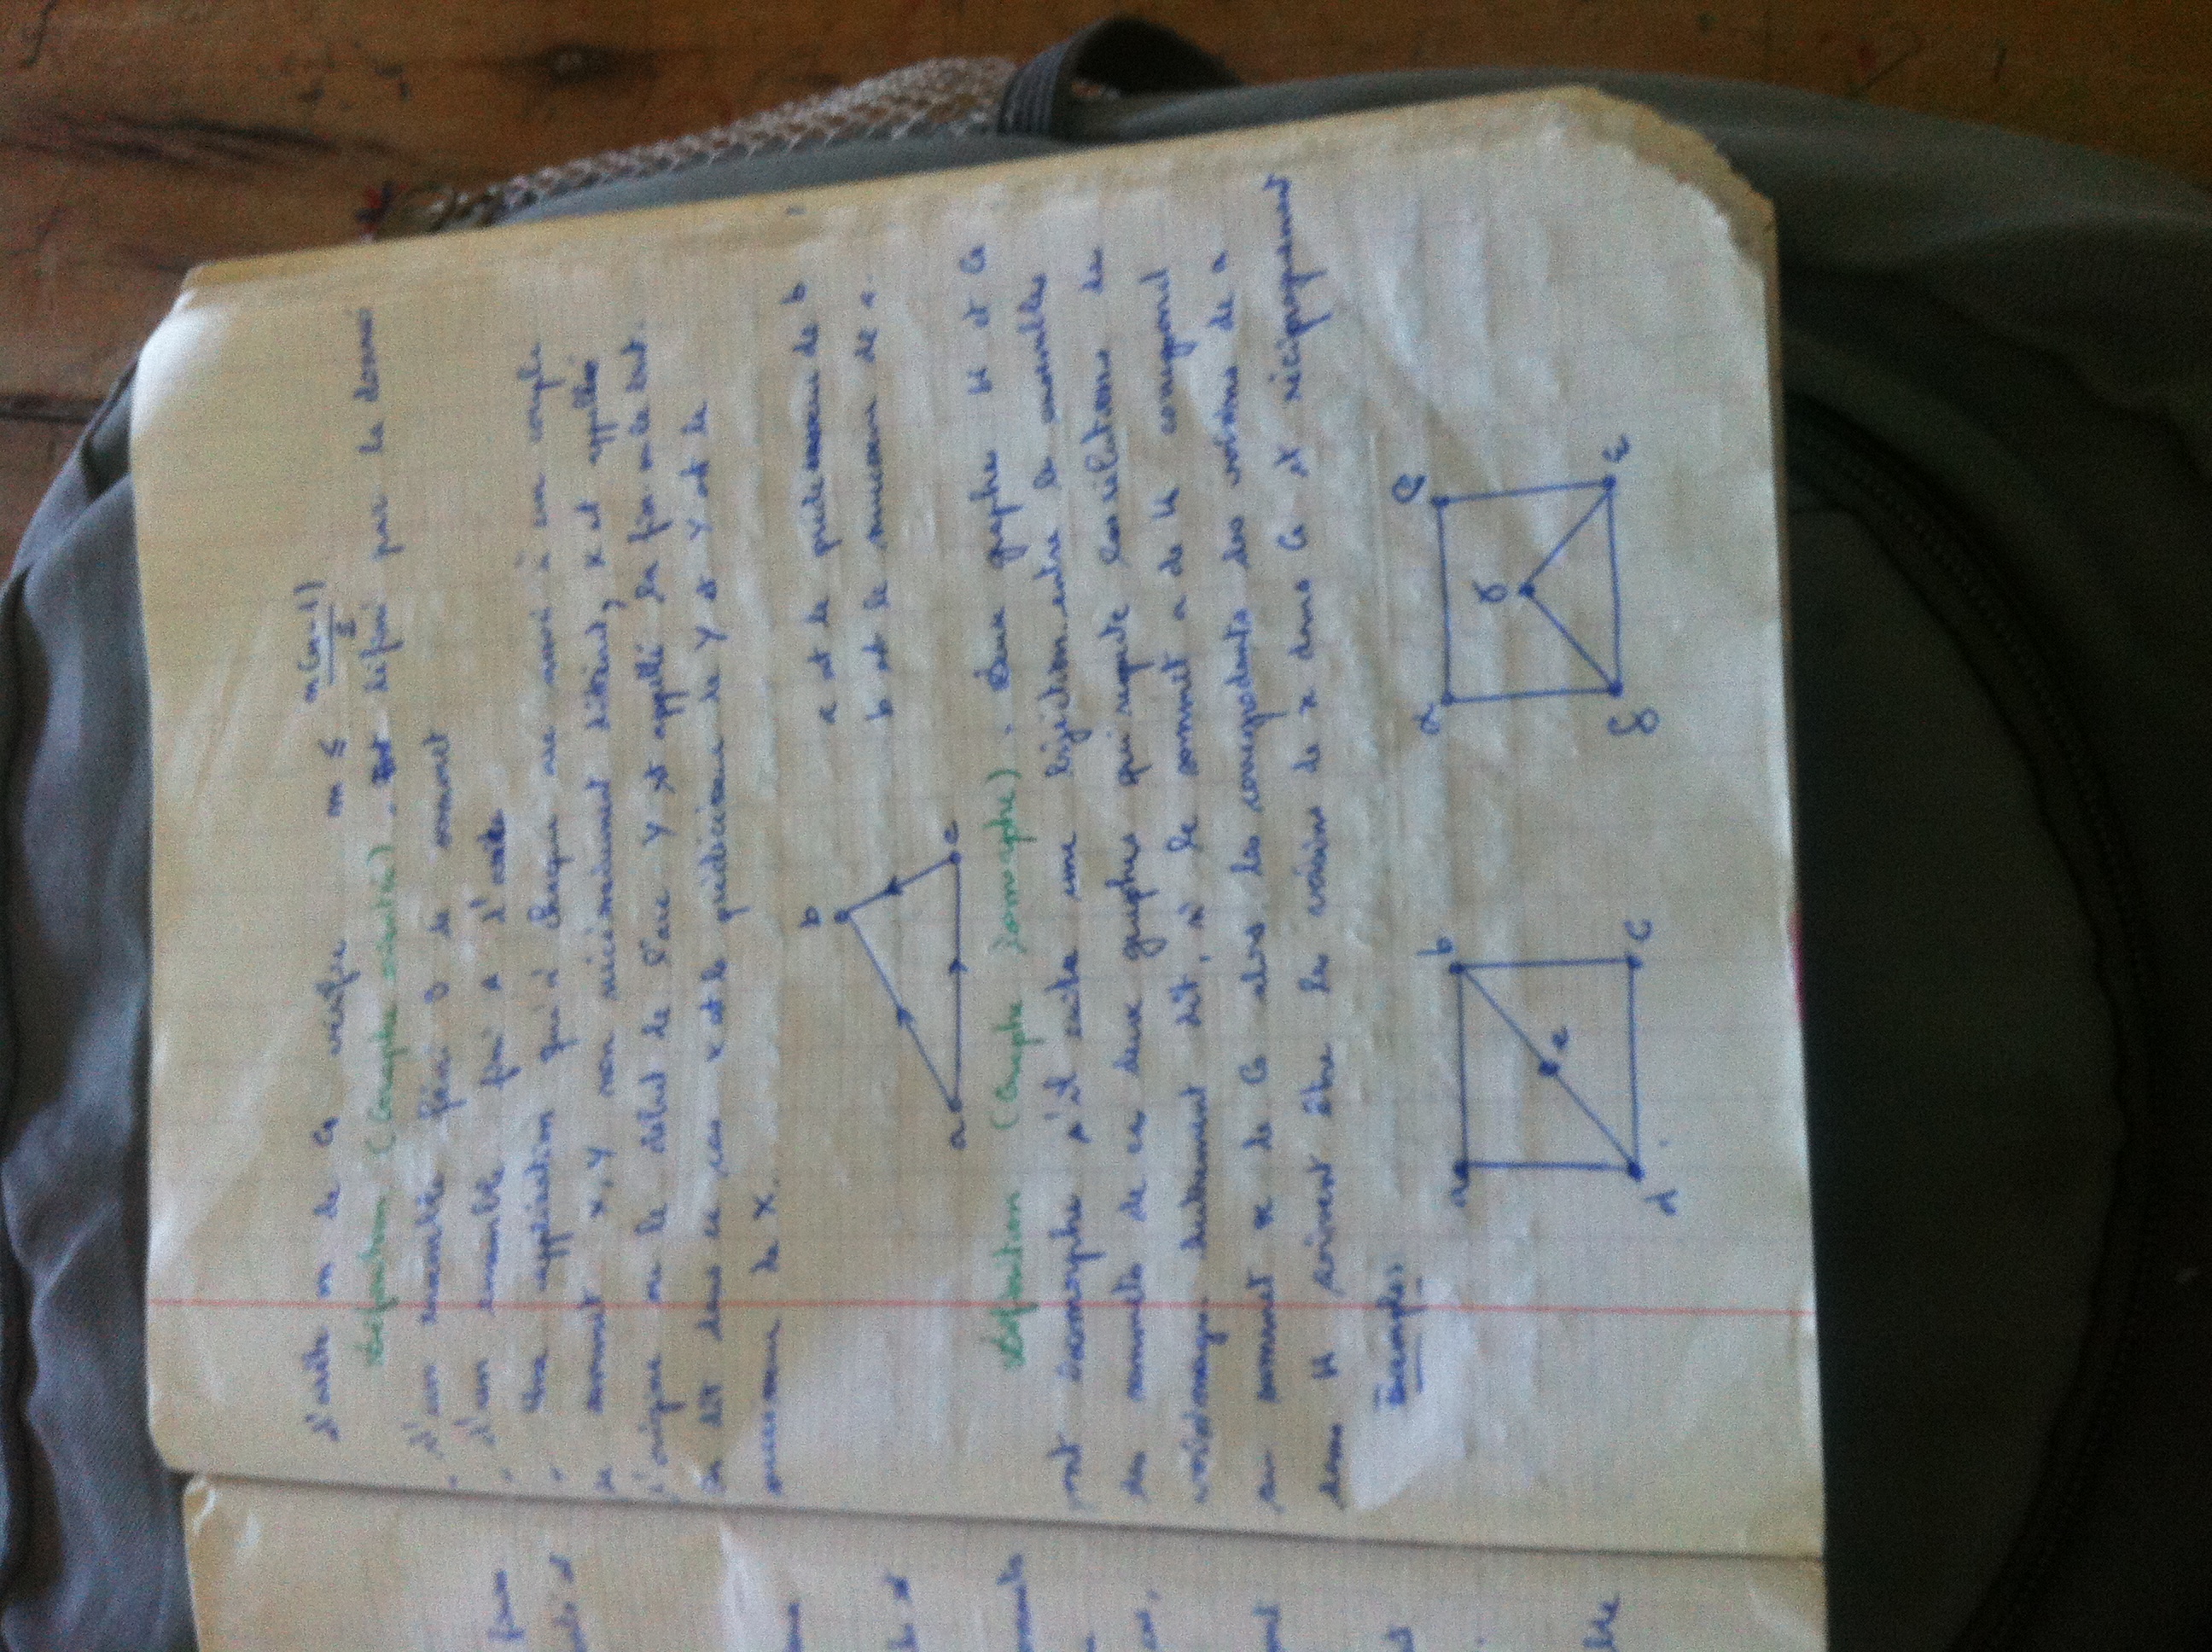 d'arête m de G vérifie m ≤ n(n-1)/2
Définition (Graphe orienté). Est défini par la donné
- d'un ensemble fini S de sommet
- d'un ensemble fini A d'arête
- Une application qui à chaque arc associ à un couple
de sommet X, Y non nécéssairement distinct, X est appellée
l'origine ou le début de l'arc Y est appellé la fin ou le but.
On dit dans ce cas X est le prédécésseur de Y et Y est le
successeur de X.
b
a est le prédecesseur de b
b est le successeur de a
a c
Définition (Graphe Isomorphe). Deux graphes H et G
sont isomorphe s'il existe une bijection entre les ensembles
des sommets de ces deux graphes qui respecte les rélations de
voisinage autrement dit, si le sommet a de H correspond
au sommet x de G alors les correspodants des voisins de a
dans H doivent être les voisins de x dans G et réciproquement
Exemple:
a b α β
e γ
d c δ ε
fini